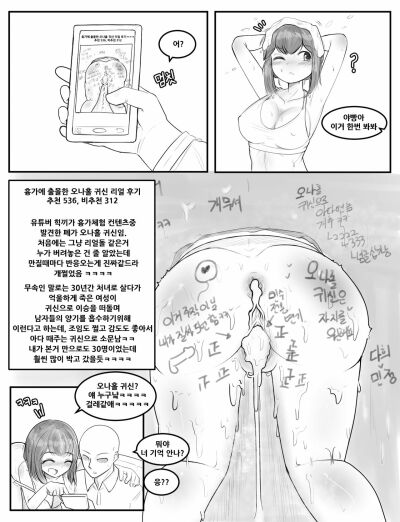 흉가에 출몰한 오나홀 귀신 리얼 후기
추천 536, 비추천 312
어?
멈칫
?
야빵아
이거 한번 봐봐
흉가에 출몰한 오나홀 귀신 리얼 후기
추천 536, 비추천 312
유튜버 헉끼가 흉가체험 컨텐츠중
발견한 폐가 오나홀 귀신임.
처음에는 그냥 리얼돌 같은거
누가 버려놓은 건 줄 알았는데
만질때마다 반응오는게 진짜같드라
개쩔었음 ㅋㅋㅋㅋ
무속인 말로는 30년간 처녀로 살다가
억울하게 죽은 여성이
귀신으로 이승을 떠돌며
남자들의 양기를 흡수하기위해
이런다고 하는데, 조임도 쩔고 감도도 좋아서
아다 때주는 귀신으로 소문남ㅋㅋ
내가 본거 만으로도 30명이었는데
훨씬 많이 박고 갔을듯ㅋㅋㅋㅋ
개무서
오나홀
귀신은
자지를
正
正
正
ㅋㅋㅋ
오나홀 귀신?
얘 누구냨ㅋㅋㅋㅋ
걸레같애ㅋㅋㅋㅋㅋ
뭐야
너 기억 안나?
응??